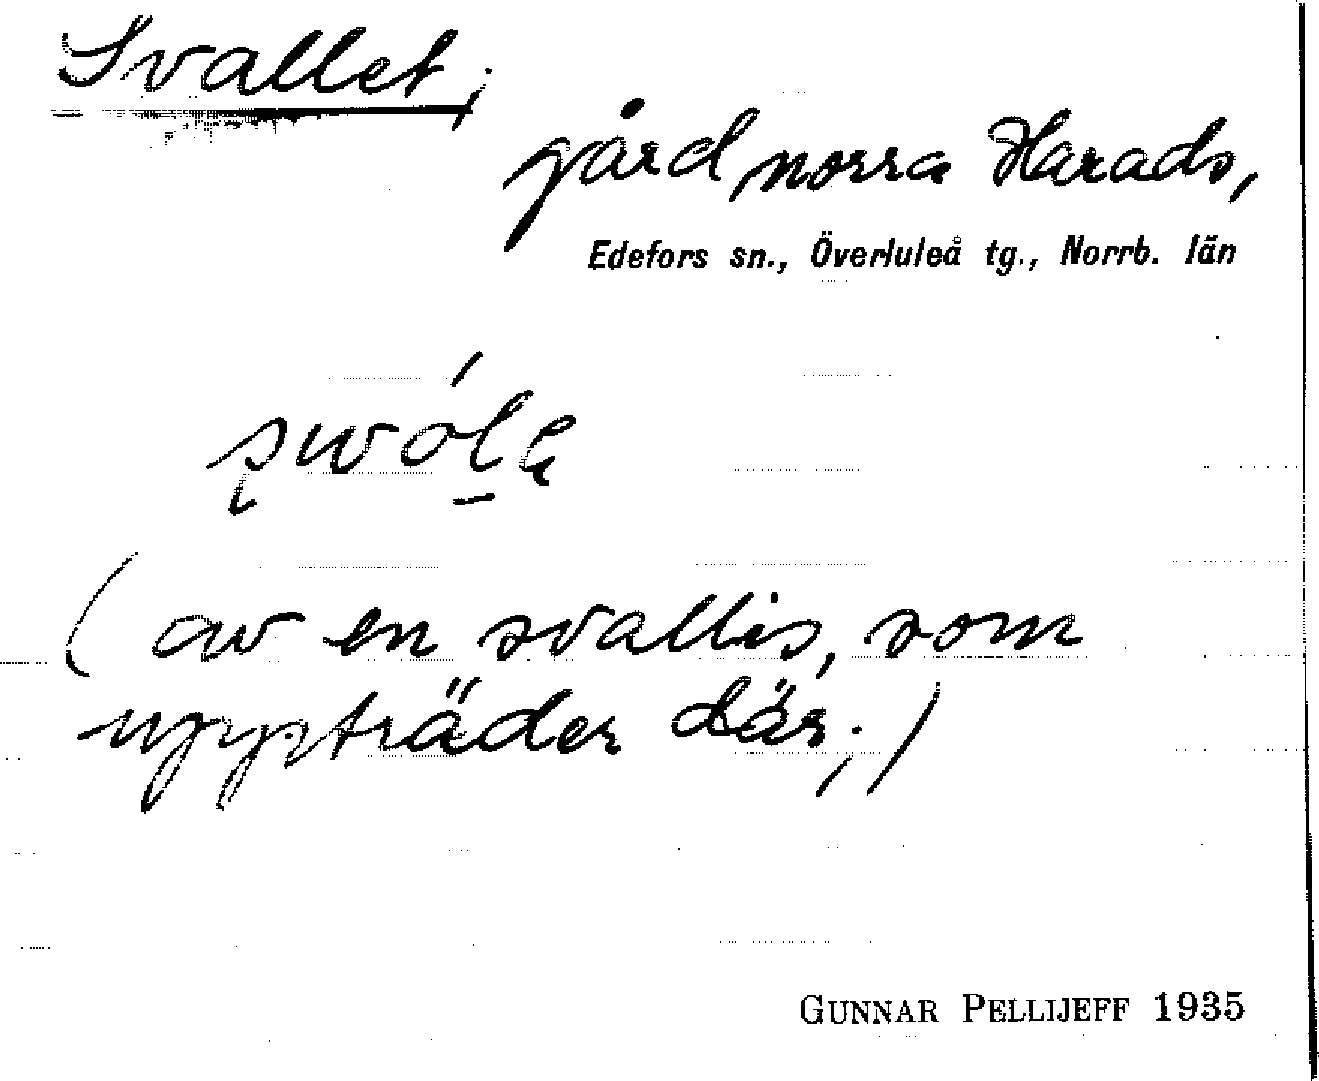 Svallet,
gård, norra Harads,
Edefors sn., Överluleå tg., Norrb. län
(av en svallis, som
uppträder där;)
GUNNAR PELLIJEFF 1935